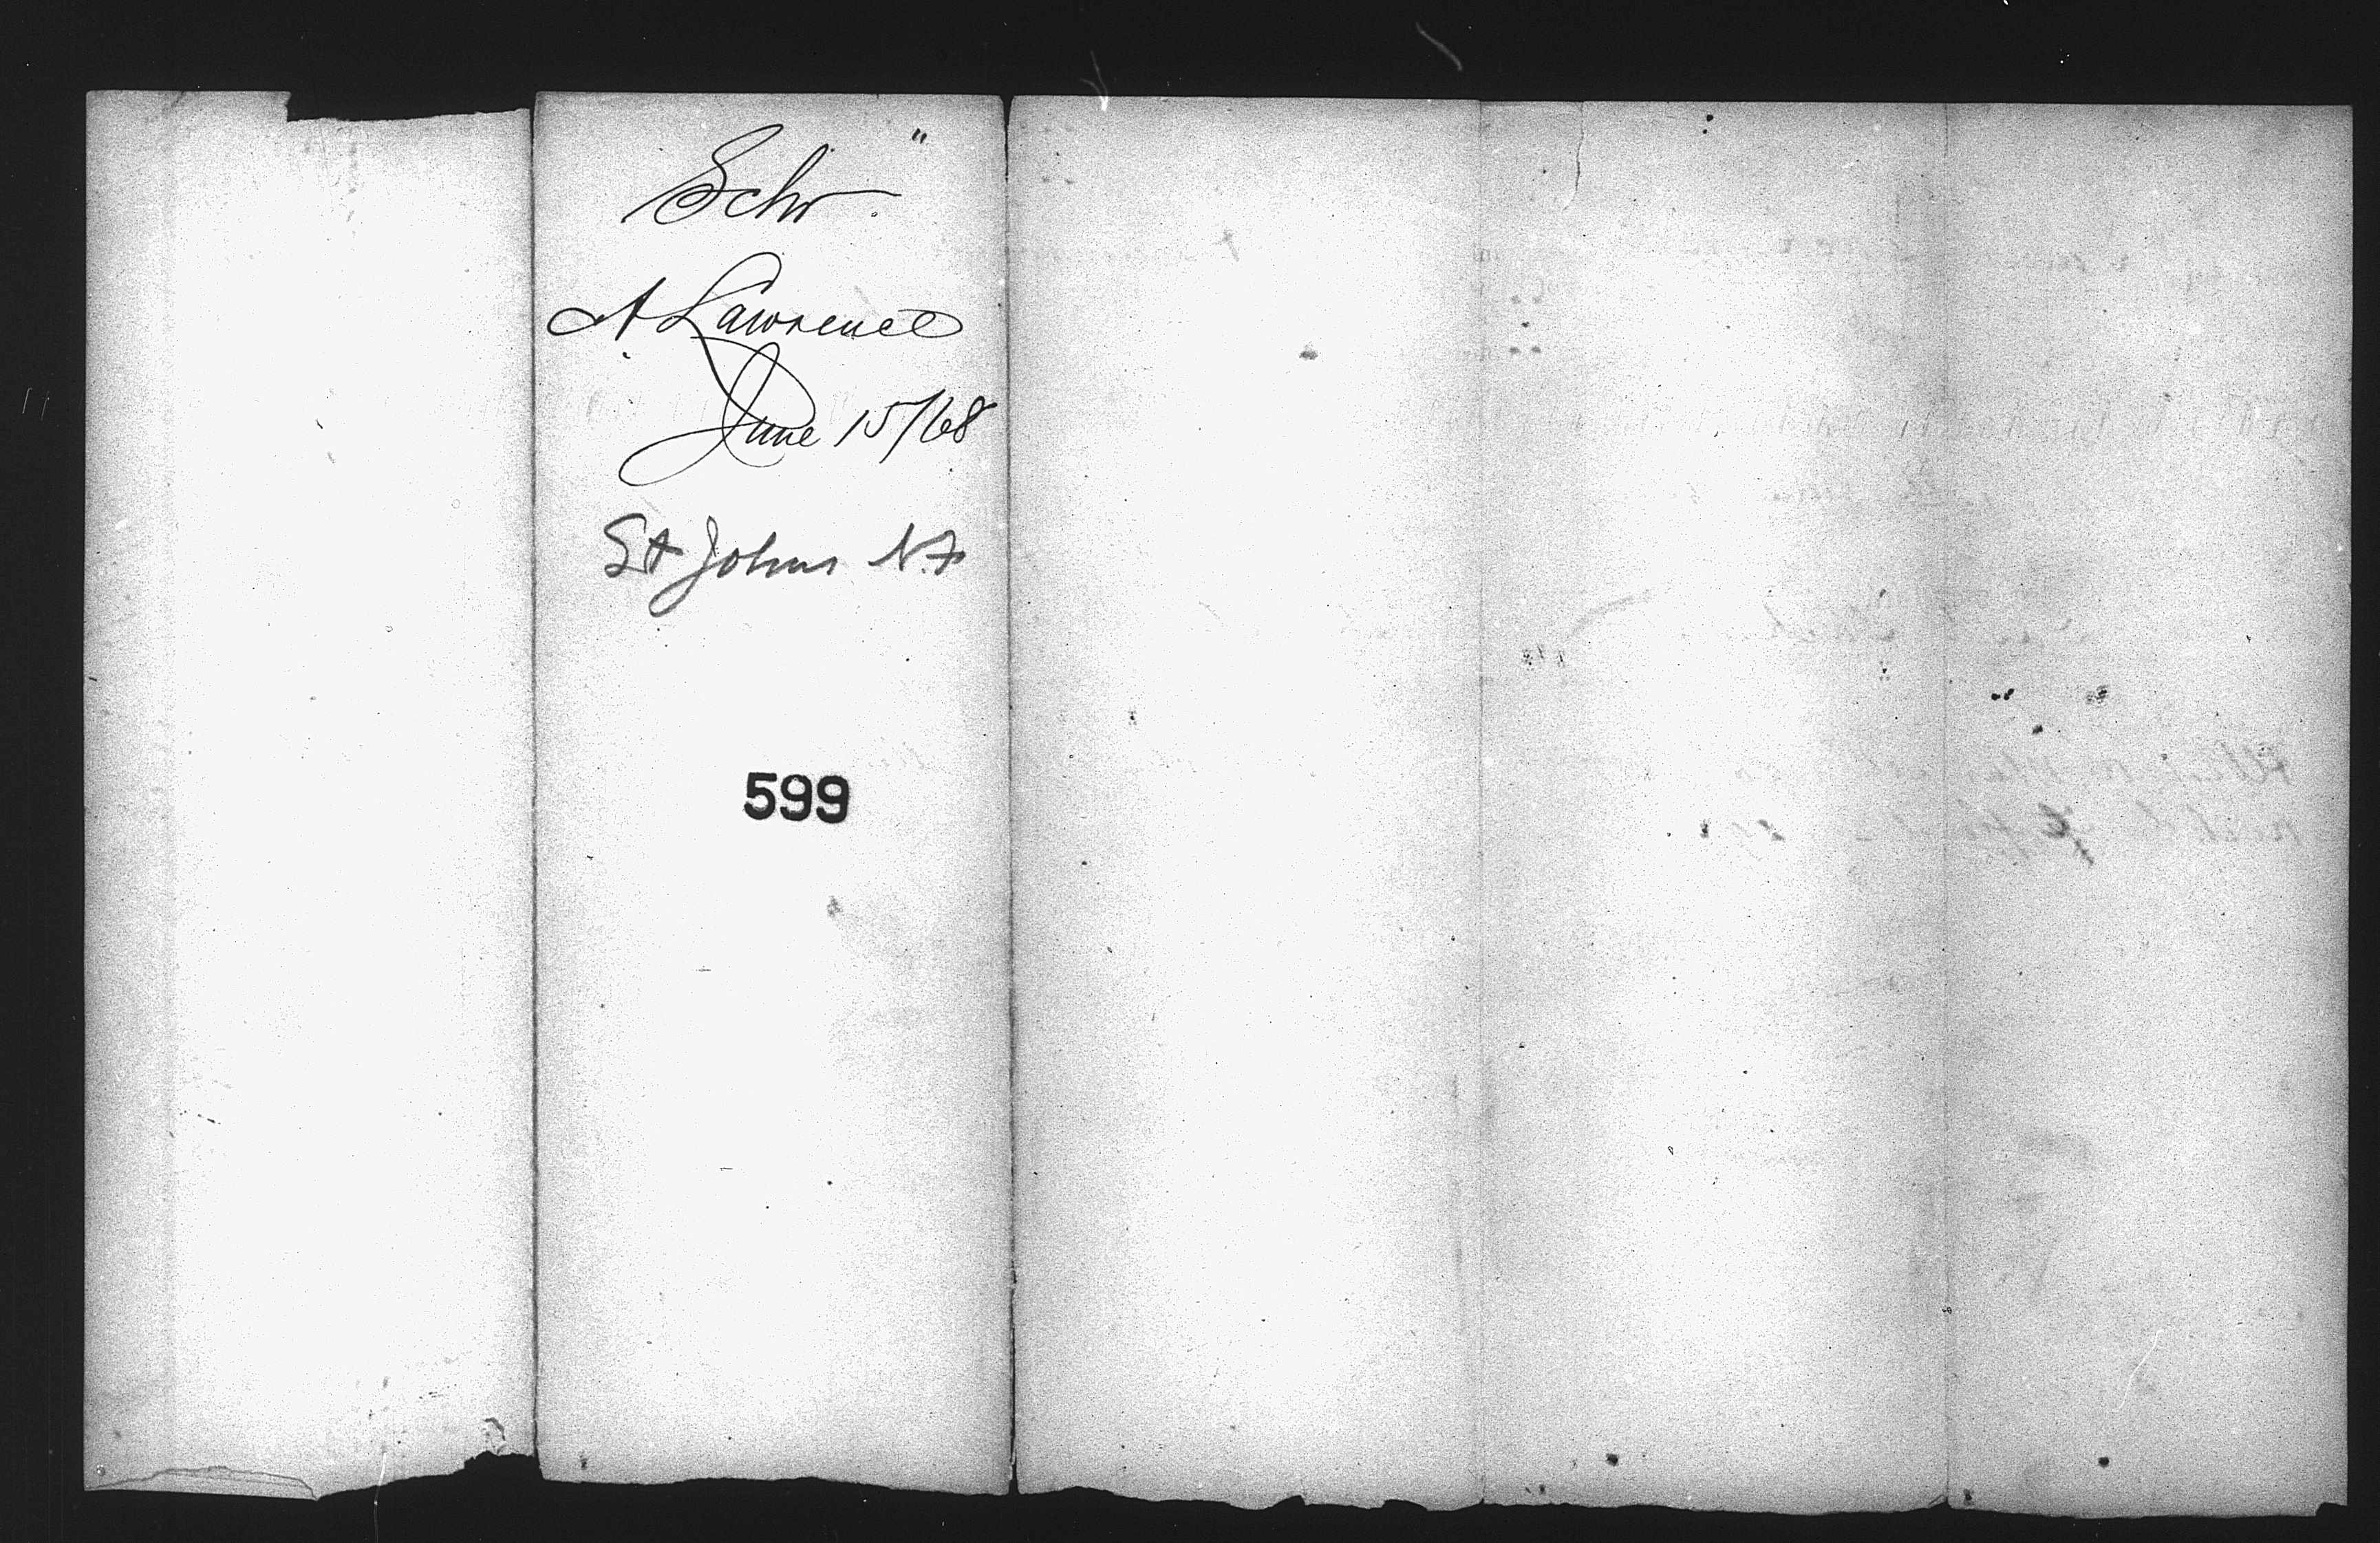 Schr. "
A Lawrence
June 15/68
St Johns N.F
599